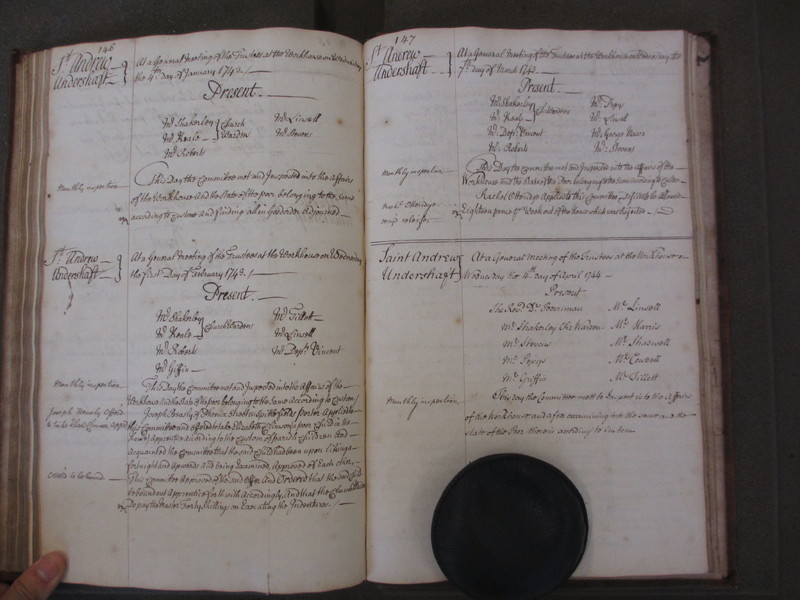 146
St. Andrew
Undershaft
At a General Meeting of the Trustees at the Workhouse on Wednesday
the 4th day of January 1743
Present
Mr. Shakerley Church Mr. Linsell
Mr. Neale Warden Mr. Stevens
Mr. Roberts
Monthly inspection
This Day the Committee met and Inspected into the Affairs
of the Workhouse and the State of the poor belonging to the same
according to Custom and finding all in Good order Adjourned
St. Andrew
Undershaft
At a General Meeting of the Trustees at the Workhouse on Wednesday
the First Day of February 1743
Present
Mr. Shakerley Mr. Tillett
Mr. Neale Church Wardens Mr. Linsell
Mr. Roberts Mr. Depty. Vincent
Mr. Giffin
Monthly Inspection
This Day the Committee met and Inspected into the Affairs of the
Workhouse and the State of the poor belonging to the Same According to Custom
Joseph
this Committee and offered to take Elizabeth a poor Child in the
House Apprentice according to the Custom of parish Children and
acquainted the Committee that the said Child had been upon likeing
fortnight and upwards and being Examined, approved of Each other,
Order'd to be bound
This Committee Approved of the said Offer and Ordered that the said Child
be bound out Apprentice forthwith Accordingly, And that the Church Warden
Do pay the Master Forty Shillings on Executing the Indentures
147
St. Andrew
Undershaft
At a General Meeting of the Trustees at the Workhouse on Wednesday the
7th day of March 1743
Present
Mr. Shakerley Mr.
Mr. Neale Church Wardens Mr. Linsell
Mr. Depty. Vincent Mr. George
Mr. Roberts Mr. Stevens
Monthly inspection
This Day the Committee met and Inspected into the Affairs of the
Workhouse and the State of the Poor belonging to the same according to Custom
Rachel Applied to this Committee to be allowed
Eighteen pence Week out of the house which was Rejected
Saint Andrew
Undershaft
At a General Meeting of the Trustees at the Workhouse on
Wednesday the 4th day of April 1744
Present
The Revd. Dr. Mr. Linsell
Mr. Shakerley Ch. Warden Mr. Harris
Mr. Stevens Mr. Shaswell
Mr. Mr.
Mr. Griffin Mr. Tillett
Monthly inspection
This day the Committee met to Inspect into the Affairs
of the Workhouse and after examining into the same and the
state of the Poor therein according to Custom